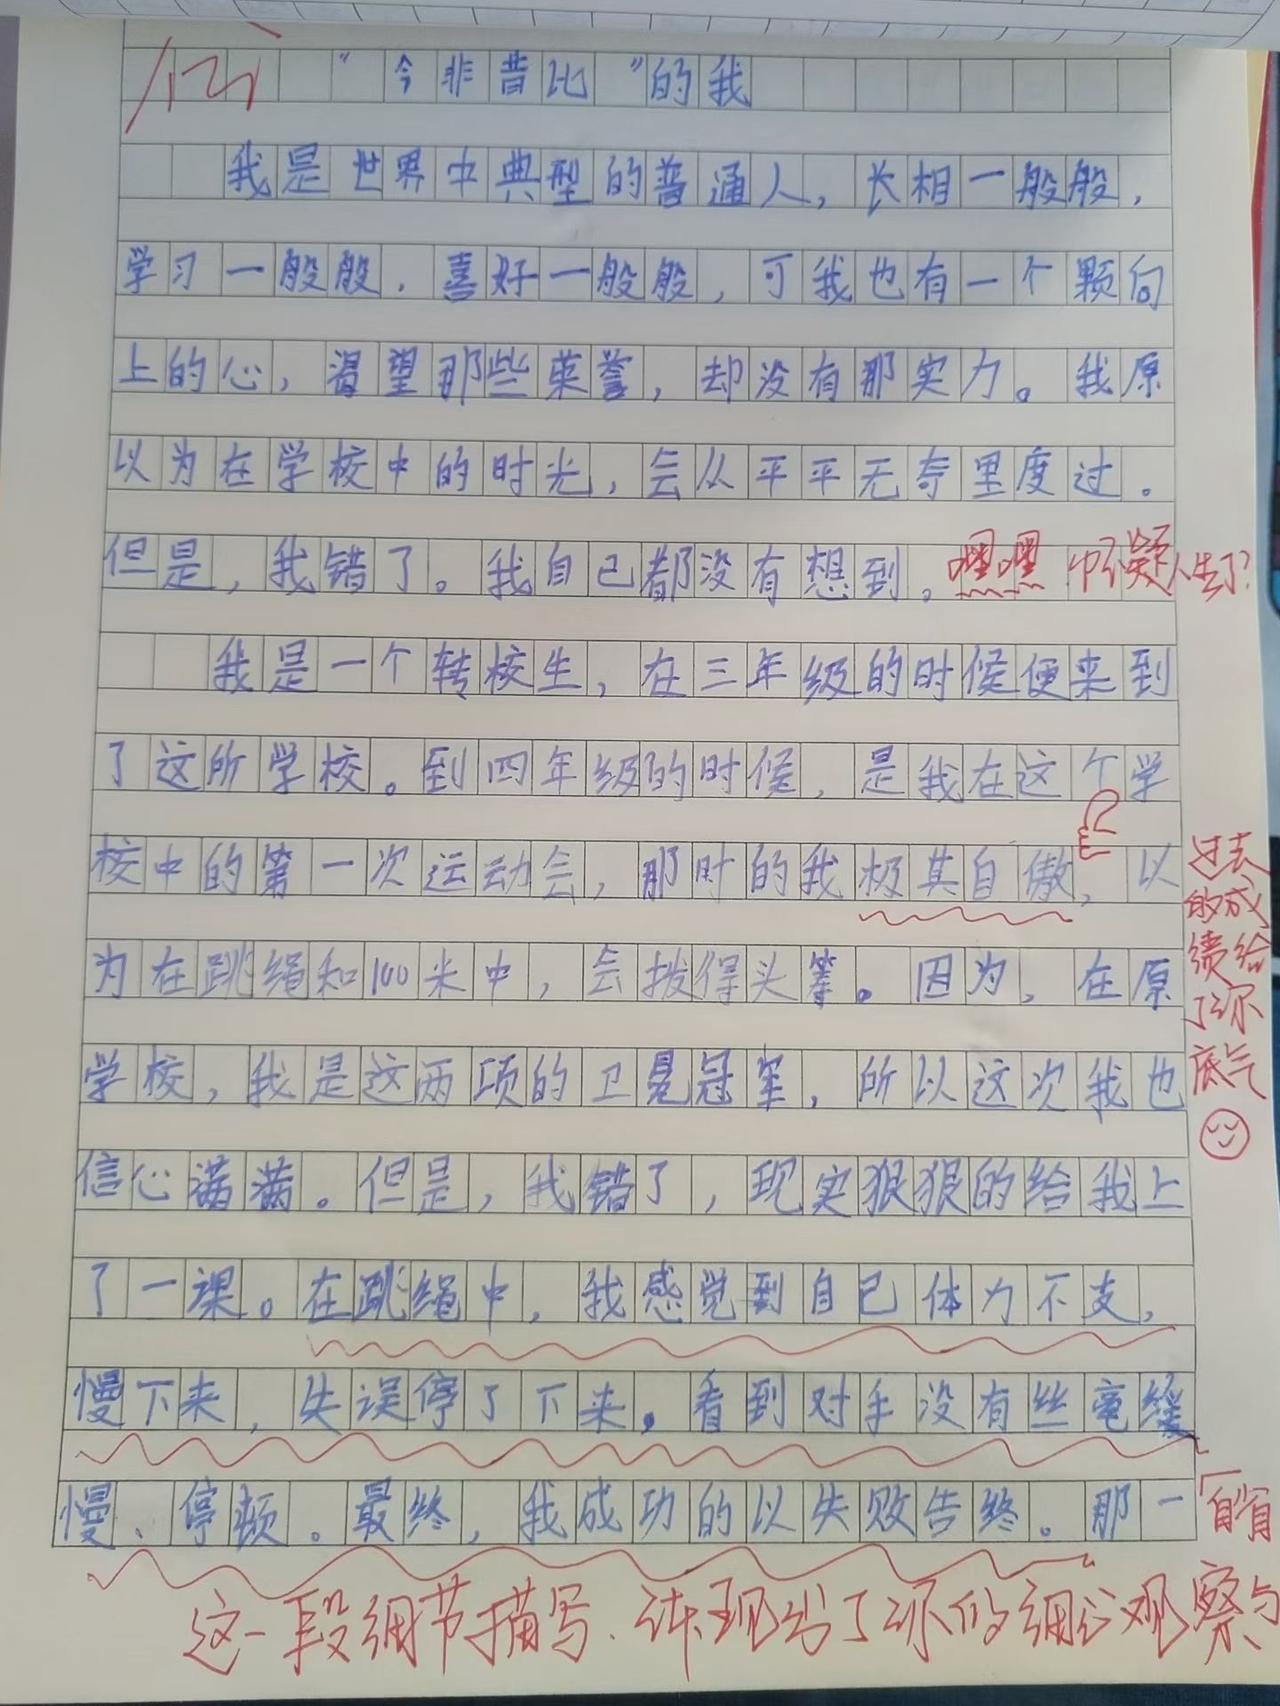 “今非昔比”的我
我是世界中典型的普通人，长相一般般，
学习一般般，喜好一般般，可我也有一个颗向
上的心，渴望那些荣誉，却没有那实力。我原
以为在学校中的时光，会从平平无奇里度过。
但是，我错了。我自己都没有想到。嘿嘿 怀疑人生了？
我是一个转校生，在三年级的时候便来到
了这所学校。到四年级的时候，是我在这个学
校中的第一次运动会，那时的我极其自傲，以
为在跳绳和100米中，会拔得头筹。因为，在原
学校，我是这两项的卫冕冠军，所以这次我也
信心满满。但是，我错了，现实狠狠的给我上
了一课。在跳绳中，我感觉到自己体力不支，
慢下来，失误停了下来。看到对手没有丝毫缓
慢、停顿。最终，我成功的以失败告终。那一
过去
的成
绩给
了你
底气
自省
这一段细节描写，体现出了你的细心观察与